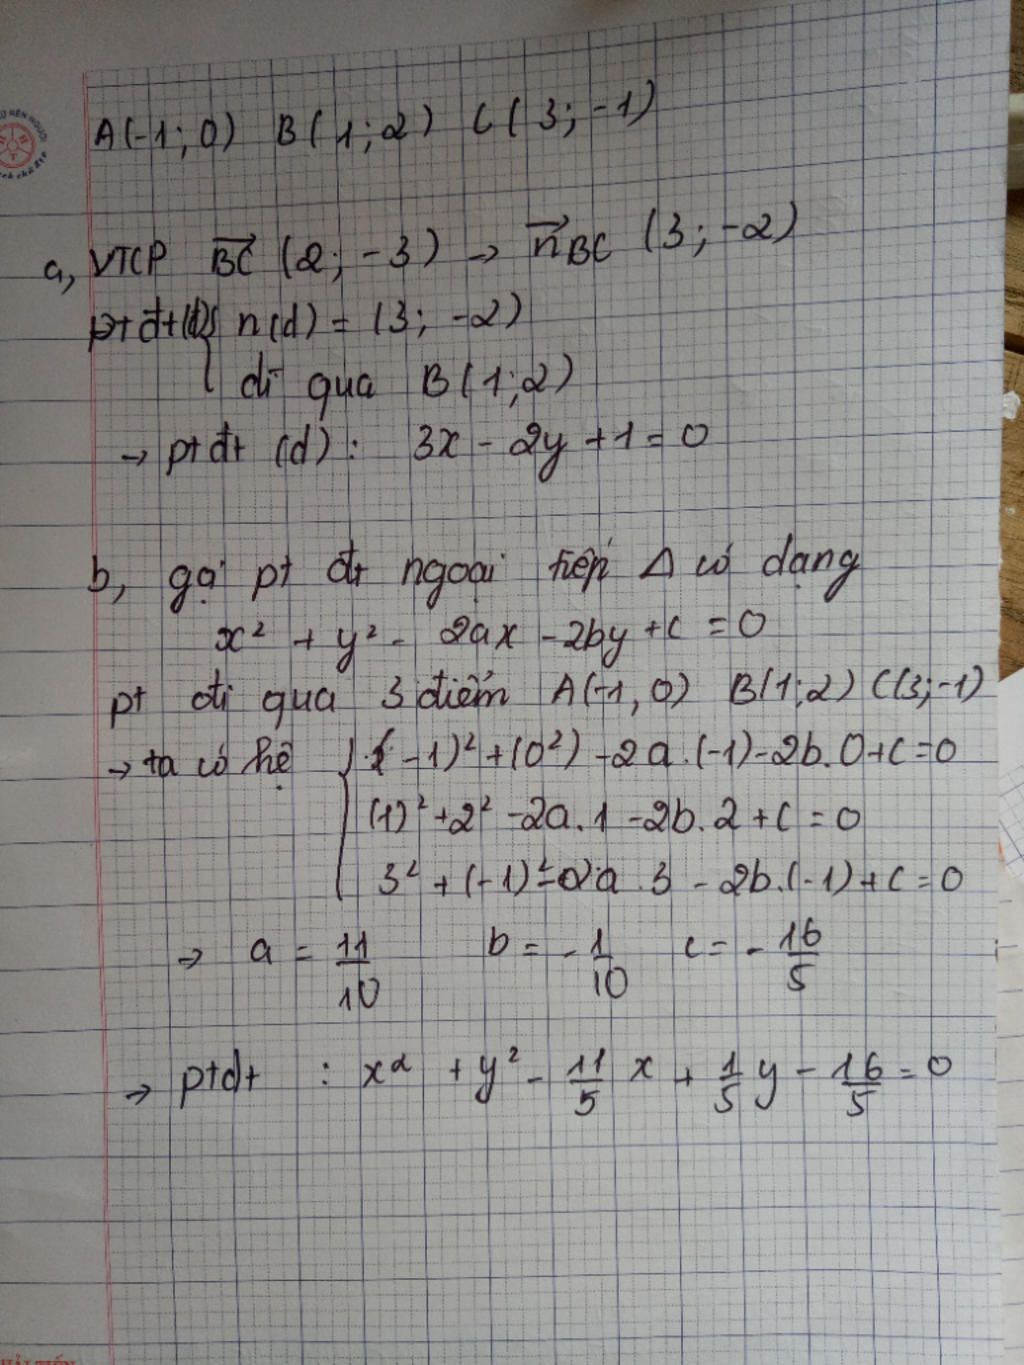 A(-1; 0) B(1; 2) C(3; -1)
a, VTCP \overrightarrow{BC} (2; -3) → \overrightarrow{n}_{BC} (3; -2)
pt đt(d) { n(d) = (3; -2)
đi qua B(1;2)
→ pt đt (d) : 3x - 2y + 1 = 0
b, gọi pt đtr ngoại tiếp Δ có dạng
x² + y² - 2ax - 2by + c = 0
pt đi qua 3 điểm A(-1, 0) B(1;2) C(3;-1)
→ ta có hệ { (-1)² + (0²) - 2a.(-1) - 2b.0 + c = 0
(1)² + 2² - 2a.1 - 2b.2 + c = 0
3² + (-1)² - 2a.3 - 2b.(-1) + c = 0
→ a = 11/10 b = -1/10 c = -16/5
→ ptđt : x² + y² - 11/5 x + 1/5 y - 16/5 = 0